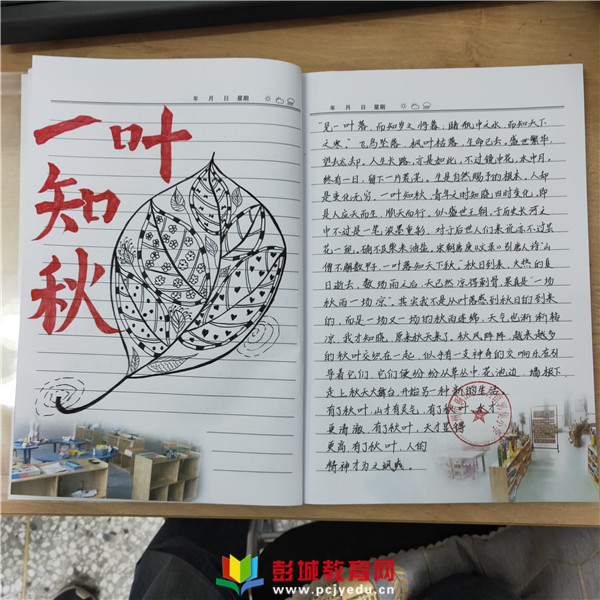 年 月 日 星期
一叶
知
秋
年 月 日 星期
"见一叶落,而知岁之将暮,睹瓶中之冰,而知天下
之寒。"飞鸟坠落,枫叶枯落,生命已去。盛世繁华,
望去之却,人生长路,亦是如此,不过镜中花,水中月。
终有一日,留下一片荒芜。生是自然赐予的根本,人却
是变化无穷。一叶知秋,青年之时知晓,四时变化,即
是人应天而生,顺天而行。似盛世王朝,于历史长河之
中不过是一笔浓墨重彩,对于后世人们来说亦不过是
花一现,确不及柴米油盐。宋朝唐庚《文录》引唐人诗"山
僧不解数甲子,一叶落知天下秋。"秋日到来,火热的夏
日逝去,数场雨之后,天已然凉得刺骨,果真是"一场
秋雨一场凉"。其实我不是从叶落感到秋日的到来
的,而是一场又一场的秋雨连绵,天气也渐渐转
凉,我才知晓,原来秋天来了。秋风阵阵,越来越多
的秋叶交织在一起,似乎有一支神奇的交响乐在引
导着它们,它们便纷纷从草丛中、花池边、墙根下
走上秋天大舞台,开始另一种新的生活
有了秋叶,山才有灵气,有了秋叶,水才
更清澈,有了秋叶,天才显得
更高,有了秋叶,人的
精神才为之飒爽。
彭城教育网
www.pcjyedu.cn